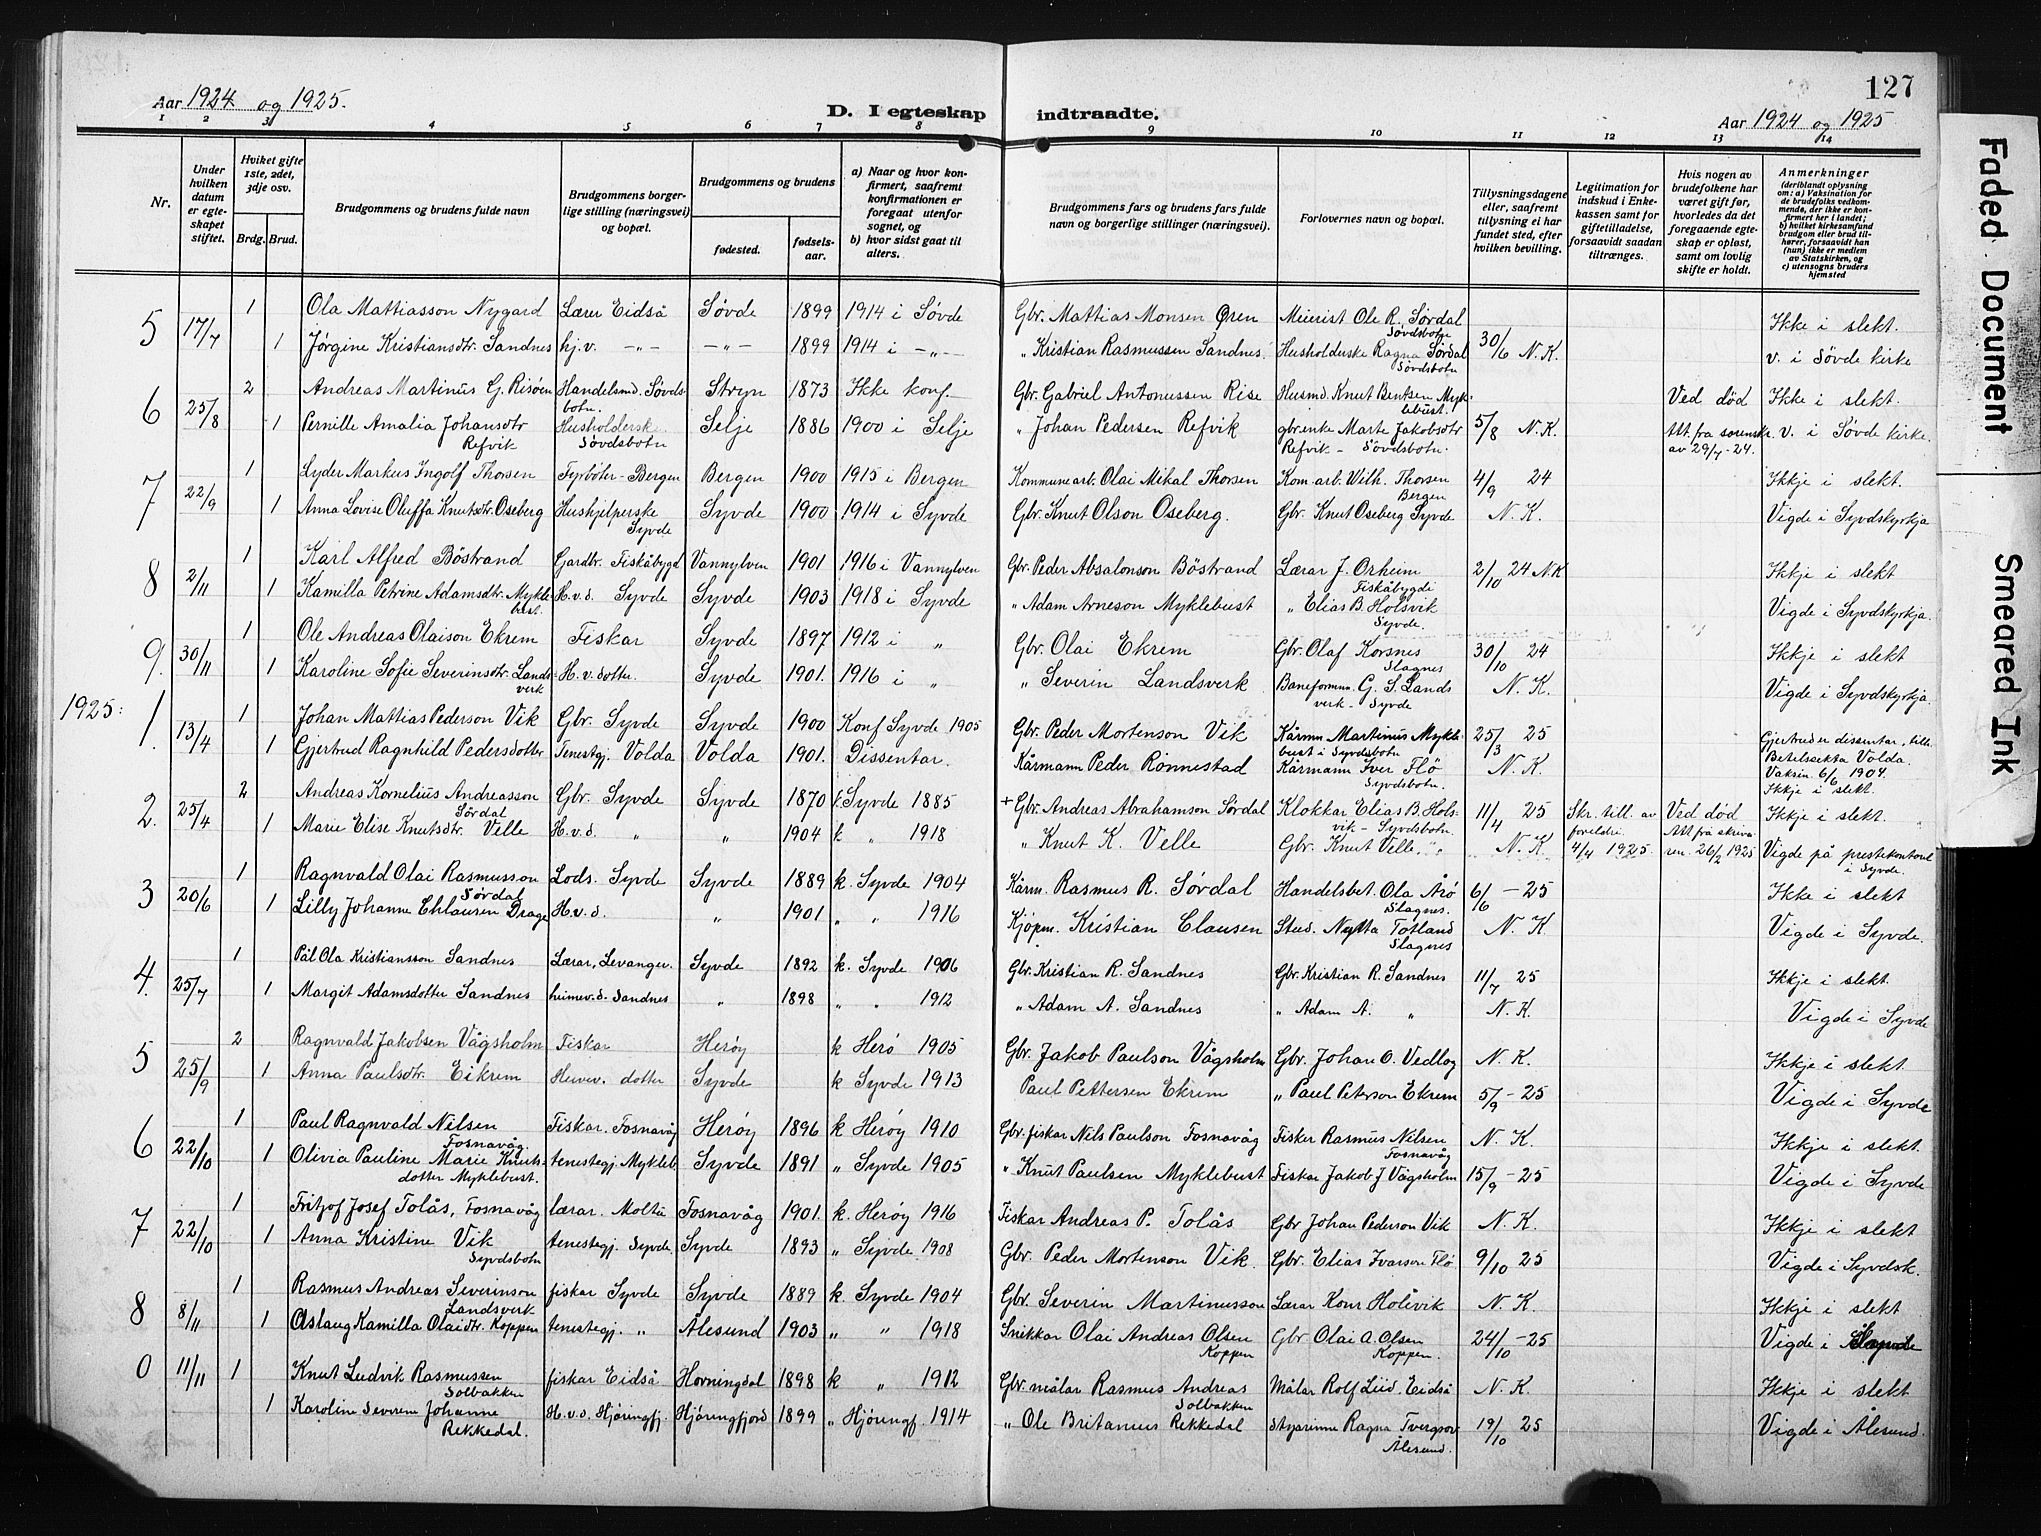 127
Aar 1924 og 1925.
D. I egteskap indtraadte.
Aar 1924 og 1925
1 2 3 4 5 6 7 8 9 10 11 12 13 14
Nr.
Under hvilken datum er egteskapet stiftet.
Hviket gifte 1ste, 2det, 3dje osv.
Brdg. Brud.
Brudgommens og brudens fulde navn
Brudgommens borgerlige stilling (næringsvei) og bopæl.
Brudgommens og brudens
fødested.
fødselsaar.
a) Naar og hvor konfirmert, saafremt konfirmationen er foregaat utenfor sognet, og
b) hvor sidst gaat til alters.
Brudgommens fars og brudens fars fulde navn og borgerlige stillinger (næringsvei).
Forlovernes navn og bopæl.
Tillysningsdagene eller, saafremt tillysning ei har fundet sted, efter hvilken bevilling.
Legitimation for indskud i Enkekassen samt for giftetilladelse, forsaavidt saadan tiltrænges.
Hvis nogen av brudefolkene har været gift før, hvorledes da det foregaaende egteskap er opløst, samt om lovlig skifte er holdt.
Anmerkninger
(deriblandt oplysning om: a) Vaksination for de brudefolks vedkommende, der ikke er konfirmert her i landet; b) hvilket kirkesamfund brudgom eller brud tilhører, forsaavidt han (hun) ikke er medlem av Statskirken, og c) utensogns bruders hjemsted
5 17/7 1 Ola Mattiasson Nygard Lærer Eidså Søvde 1899 1914 i Søvde Gbr. Mattias Monsen Øren Meierist Ole R. Sørdal Søvdsbotn 30/6 N.K. Ikke i slekt.
1 Jørgine Kristiansdtr. Sandnes hj.v. -„- -„- 1899 1914 i -„- „ Kristian Rasmussen Sandnes. Husholderske Ragna Sørdal Søvdsbotn v. i Søvde kirke
6 25/8 2 Andreas Martinus G. Risøen Handelsmd. Søvdsbotn. Stryn 1873 Ikke konf. Gbr. Gabriel Antonussen Rise Husmd. Knut Bentsen Myklebust. 5/8 N.K. Ved død Ikke i slekt.
1 Pernille Amalia Johansdtr Refvik Husholdersk Søvdsbotn Selje 1886 1900 i Selje „ Johan Pedersen Refvik gbr.enke Marte Jakobsdtr Refvik - Søvdsbotn. Att. fra sorenskr. av 29/7-24. v. i Søvde kirke.
7 22/9 1 Lyder Markus Ingolf Thorsen Fyrbøter - Bergen Bergen 1900 1915 i Bergen Kommunearb. Olai Mikal Thorsen Kom.arb. Wilh. Thorsen Bergen 4/9 24 Ikkje i slekt.
1 Anna Lovise Oluffa Knutsdtr. Oseberg Hushjelperske Syvde Syvde 1900 1914 i Syvde Gbr. Knut Olson Oseberg. Gbr. Knut Oseberg Syvde N.K. Vigde i Syvdskyrkja
8 2/11 1 Karl Alfred Böstrand Gardbr. Fiskåbygd Vannylven 1901 1916 i Vannylven Gbr. Peder Absalonson Böstrand Lærar J. Orheim Fiskåbygdi 2/10 24 N.K Ikkje i slekt
1 Kamilla Petrine Adamsdtr. Myklebust. H.v.d. Syvde Syvde 1903 1918 i Syvde „ Adam Arneson Myklebust „ Elias B. Holsvik Syvde. Vigde i Syvdskyrkja.
9. 30/11 1 Ole Andreas Olaison Ekrem Fiskar Syvde 1897 1912 i „ Gbr. Olai Ekrem Gbr. Olaf Korsnes Slagnes 30/10 24 Ikkje i slekt
1 Karoline Sofie Severinsdtr. Landsverk H.v.dotter. Syvde 1901. 1916 i „ „ Severin Landsverk Baneformn. G. S. Landsverk - Syvde N.K. Vigde i Syvdskyrkja.
1925: 1. 13/4 1 Johan Mattias Pederson Vik Gbr. Syvde Syvde 1900 Konf Syvde 1905 Gbr. Peder Mortenson Vik Kårmn Martinus Myklebust i Syvdsbotn 25/3 25
1 Gjertrud Ragnhild Pedersdotter Tenestgj. Volda Volda 1901. Dissentar. Kårmann Peder Rönnestad Kårmann Iver Flö Syvdsbotn. N.K. Gjertrud er dissentar, till. Betelsekta Volda. Vaksin. 6/6 1904. Ikkje i slekt.
2. 25/4 2 Andreas Kornelius Andreasson Sördal Gbr. Syvde Syvde 1870 k. Syvde 1885 + Gbr. Andreas Abrahamson Sørdal Klokkar Elias B. Holsvik - Syvdsbotn. 11/4 25 Skr. till. av foreldri 4/4 1925. Ved död Att frå skrivaren. 26/2 1925 Ikkje i slekt.
1 Marie Elise Knutsdtr. Velle H.v.d. „ „ 1904 k „ 1918 „ Knut K. Velle Gbr. Knut Velle. „ N.K. Vigde på prestekontoret i Syvde.
3 20/6 1 Ragnvald Olai Rasmusson Sørdal Lods. Syvde Syvde 1889 k. Syvde 1904 Kårm. Rasmus R. Sördal Handelsbet. Ola Årö Slagnes. 6/6 - 25 Ikke i slekt
1 Lilly Johanne Chlausen Drage H.v.d. „ 1901 „ „ 1916 Kjöpm. Kristian Clausen Stud. Nytta Totland Slagnes N.K. Vigde i Syvde.
4. 25/7 1 Pål Ola Kristiansson Sandnes Lærar, Levanger. Syvde 1892 k. Syvde 1906 Gbr. Kristian R. Sandnes Gbr. Kristian R. Sandnes 11/7 25 Ikkje i slekt.
1 Margit Adamsdotter Sandnes heimev.d. Sandnes „ 1898 „ . 1912 „ Adam A. Sandnes „ Adam A. „ N.K. Vigde i Syvde
5 25/9 2 Ragnvald Jakobsen Vågsholm Fiskar Heröy k Herö 1905 Gbr. Jakob Paulson Vågsholm Gbr. Johan O. Vedlog N.K. Ikkje i slekt
1 Anna Paulsdtr. Eikrem Heimev. dotter Syvde k Syvde 1913 Paul Pettersen Ekrem „ Paul Peterson Ekrem 5/9 - 25 Vigde i Syvde
6 22/10 1 Paul Ragnvald Nilsen Fosnavåg Fiskar. Fosnavåg Heröy 1896 k Heröy 1910 Gbr. fiskar Nils Paulson Fosnavåg Fisker Rasmus Nilsen Fosnavåg N.K. Ikkje i slekt.
1 Olivia Pauline Marie Knutsdotter Myklebust. tenestegj. Mykleb. Syvde 1891 „ Syvde 1905 „ Knut Paulsen Myklebust Fiskar Jakob J Vågsholm 15/9 - 25 Vigde i Syvde
7 22/10 1 Fritjof Josef Tolås, Fosnavåg lærar. Moltu Fosnavåg 1901. k. Heröy 1916 Fiskar Andreas P. Tolås Gbr Johan Pederson Vik N.K. Ikkje i slekt
1 Anna Kristine Vik Syvdsbotn tenestegj. Syvde Syvde 1893 „ Syvde 1908 Gbr. Peder Mortenson Vik. Gbr. Elias Ivarson Flö. 9/10 25 Vigde i Syvdsk.
8 8/11 1 Rasmus Andreas Severinson Landsverk fiskar Syvde Syvde 1889 k. Syvde 1904 Gbr. Severin Martinusson Lærar Konr Holsvik N.K. Ikkje i slekt
1 Aslaug Kamilla Olaidtr. Koppen tenestegj. „ Ålesund 1903 „ „ 1918 Snikkar Olai Andreas Olsen Koppen Gbr Olai A. Olsen Koppen. 24/10 - 25 Vigde i
0 11/11 1 Knut Ludvik Rasmussen Solbakken fiskar Eidså Horningdal 1898 k „ 1912 Gbr. målar Rasmus Andreas Solbakken Målar Rolf Liid. Eidså N.K. Ikkje i slekt
1 Karoline Severine Johanne Rekkedal. H.v.d. Hjöringfj. Hjöringfjord 1899 „ Hjöringf. 1914 „ Ole Britanius Rekkedal Styarinne Ragna Tvergrov Ålesund. 19/10 25 Vigde i Ålesund.
Faded Document
Smeared Ink